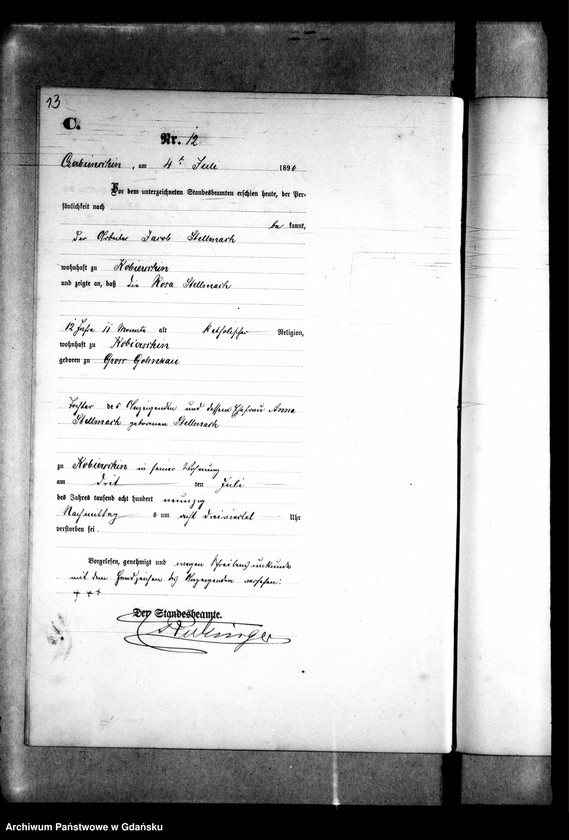 13
C.
Nr. 12
am 4t Juli 1890
Vor dem unterzeichneten Standesbeamten erschien heute, der Per-
sönlichkeit nach
be kannt,
der Arbeiter Jacob Stellmach
wohnhaft zu Kobierschin
und zeigte an, daß die Rosa Stellmach
12 Jahre 11 Monate alt katholischer Religion,
wohnhaft zu Kobierschin
geboren zu Gross Golmkau
Tochter des Anzeigenden und dessen Ehefrau Anna
Stellmach geborenen Stellmach
zu Kobierschin in seiner Wohnung
am den Juli
des Jahres tausend acht hundert neunzig
Nachmittag s um acht dreiviertel Uhr
verstorben sei.
Vorgelesen, genehmigt und wegen Schreibensunkunde
mit dem Handzeichen des Anzeigenden versehen:
+ + +
Der Standesbeamte.
Archiwum Państwowe w Gdańsku